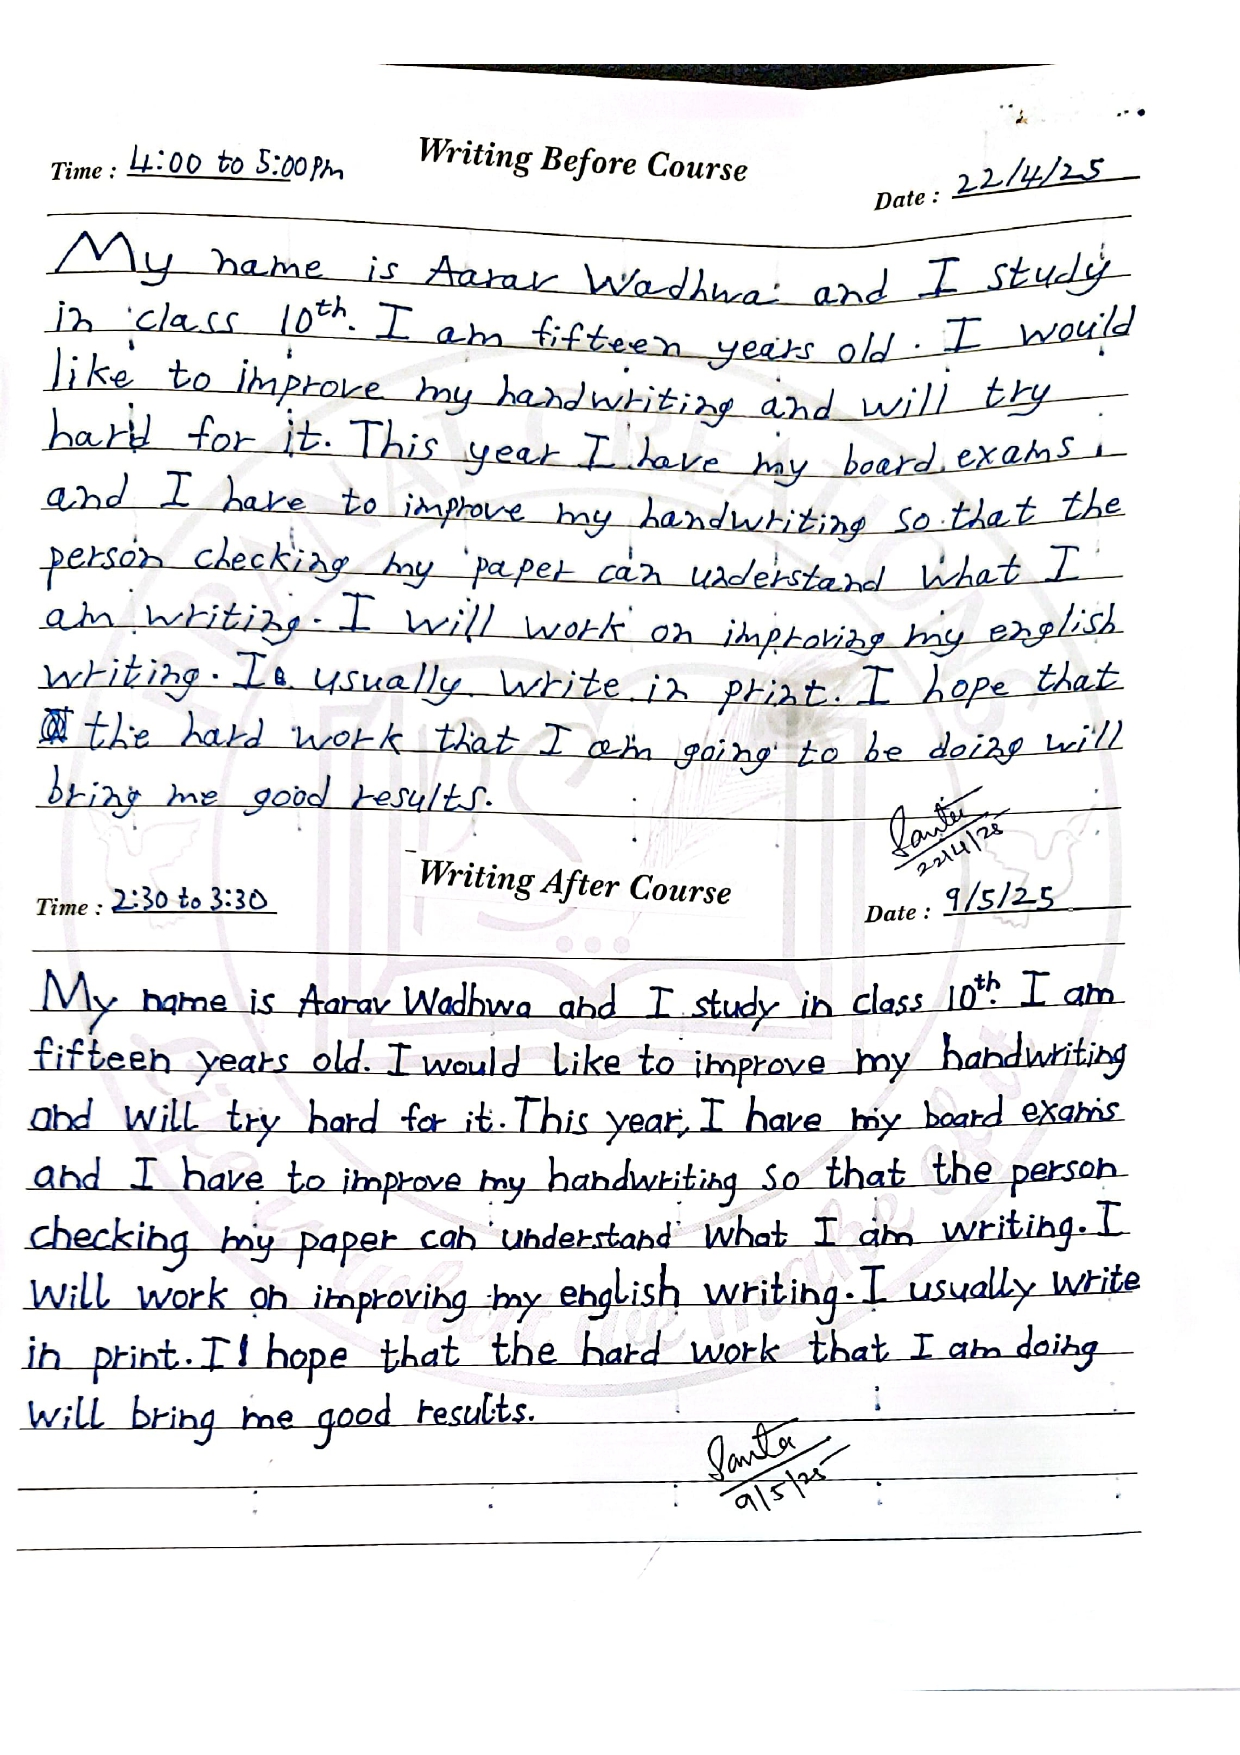 Writing Before Course
Time : 4:00 to 5:00 Pm
Date : 22/4/25
My name is Aarav Wadhwa and I study
in class 10th. I am fifteen years old. I would
like to improve my handwriting and will try
hard for it. This year I have my board exams
and I have to improve my handwriting so that the
person checking my paper can understand what I
am writing. I will work on improving my english
writing. I usually write in print. I hope that
the hard work that I am going to be doing will
bring me good results.
22/4/25
Writing After Course
Time : 2:30 to 3:30
Date : 9/5/25
My name is Aarav Wadhwa and I study in class 10th. I am
fifteen years old. I would like to improve my handwriting
and will try hard for it. This year, I have my board exams
and I have to improve my handwriting so that the person
checking my paper can understand what I am writing. I
will work on improving my english writing. I usually write
in print. I hope that the hard work that I am doing
will bring me good results.
9/5/25